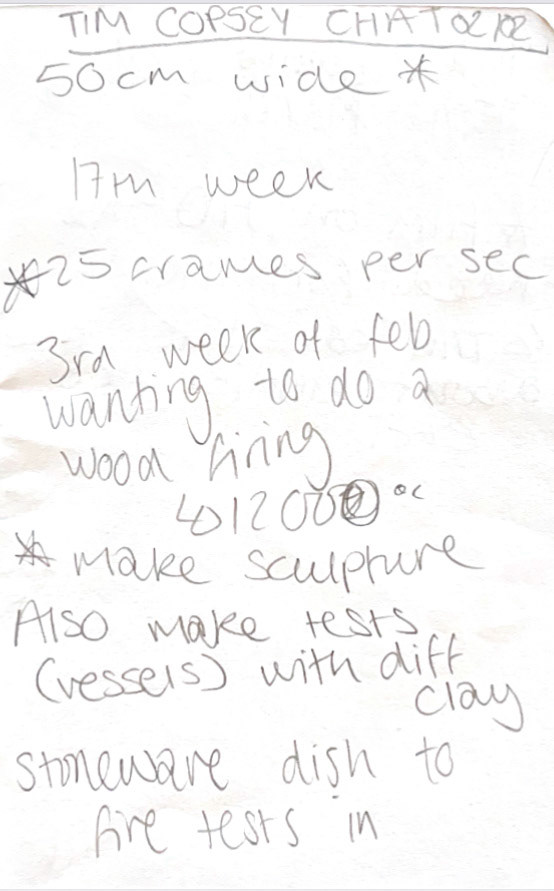 TIM COPSEY CHAT 02/02
50cm wide *
17th week
*25 frames per sec
3rd week of feb
wanting to do a
wood firing
↳ 1200 °C
* make sculpture
Also make tests
(vessels) with diff
clay
stoneware dish to
fire tests in